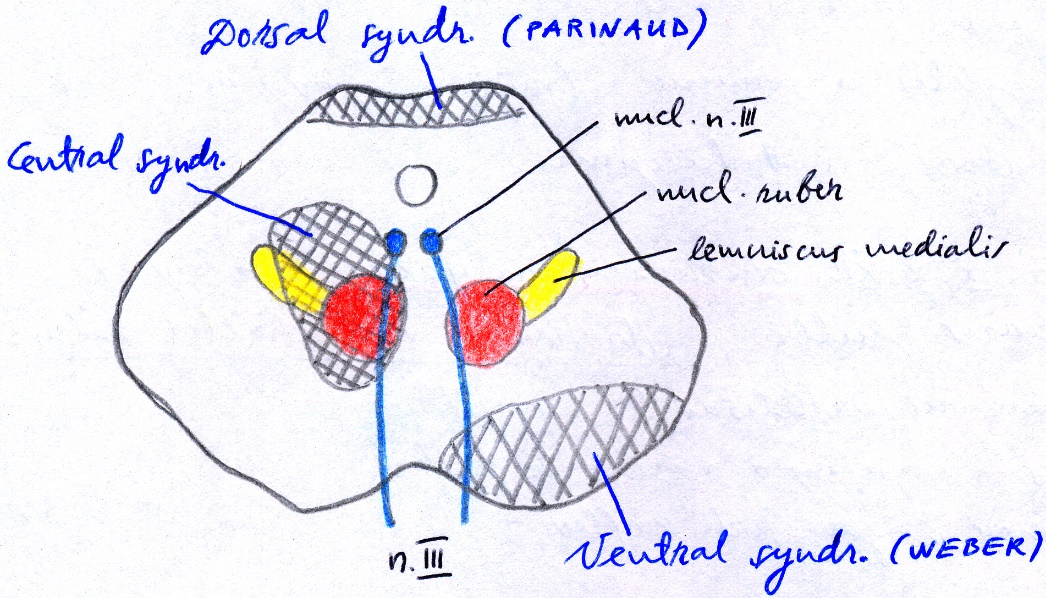 Dorsal syndr. (PARINAUD)
nucl. n. III
Central syndr.
nucl. ruber
lemniscus medialis
n. III
Ventral syndr. (WEBER)